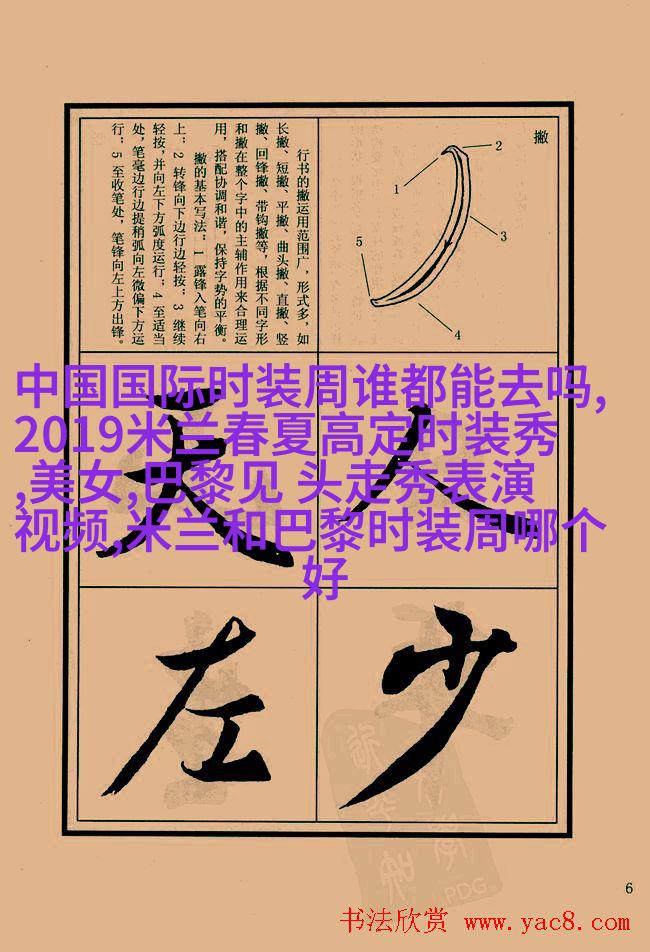 撇
1
2
3
4
5
行书的撇运用范围广，形式多，如
长撇、短撇、平撇、曲头撇、直撇、竖
撇、回锋撇、带钩撇等，根据不同字形
和撇在整个字中的主辅作用来合理运
用，搭配协调和谐，保持字势的平衡。
撇的基本写法：1 露锋入笔向右
上；2 转锋向下边行边轻按；3 继续
轻按，并向左下方弧度运行；4 至适当
处，笔毫边行边提稍弧向左微偏下方运
行；5 至收笔处，笔锋向左上方出锋。
中国国际时装周谁都能去吗,
2019米兰春夏高定时装秀
,美女,巴黎见 头走秀表演
视频,米兰和巴黎时装周哪个
好
人
天
少
左
PDG
6
书法欣赏 www.yac8.com